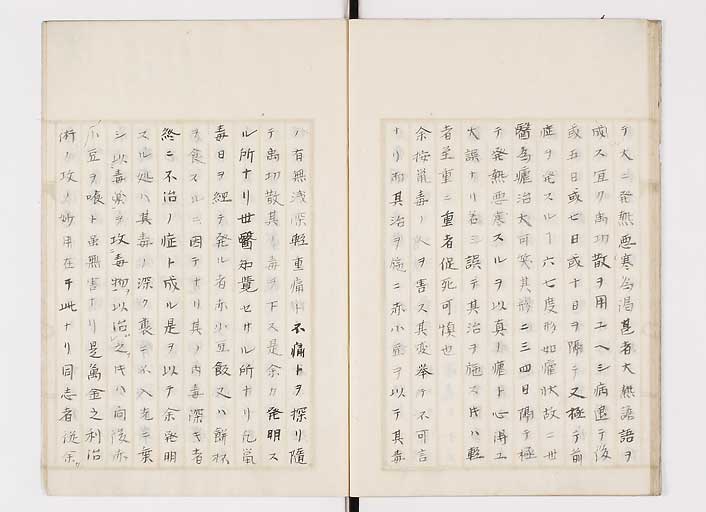 テ大ニ発熱悪寒為渇甚者大熱譫語ヲ
成ス宜ク禹功散ヲ用ユヘシ病退テ後
或五日或七日或十日ヲ隔テ又極テ前
症ヲ発スルヿ六七度形如瘧状故ニ世
醫為瘧治大可笑其形ニ三四日隔テ極
テ発熱悪寒スルヲ以真ノ瘧ト心得ユ
大誤ナリ若三誤テ其治ヲ施ス氏ハ軽
者至重ニ重者促死可慎也
余按鼠毒ノ人ヲ害ス其変挙テ不可言
ナリ而其治ヲ施ニ赤小豆ヲ以テ其毒
ノ有無浅深軽重痛不痛トヲ探リ隨
テ禹功散其ノ毒ヲ下ス是余カ発明ス
ル所ナリ世醫知覚セサル所ナリ凢鼠
毒日ヲ経テ発ル者赤小豆飯又ハ餅抔
ヲ食スルニ因テナリ其ノ内毒深キ者
終ニ不治ノ症ト成ル是ヲ以テ余発明
スル処ハ其毒ノ深ク裏ニ不入先ニ葉
シ以毒薬ヲ攻毒物以治之氏ハ向後赤
小豆ヲ喰ト虽無害ナリ是萬金之利治
術ノ攻ノ妙用在于此ナリ同志者従余